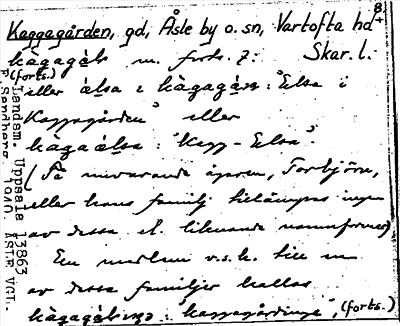 8.
Kaggagården, gd, Åsle by o. sn, Vartofta hd
Skar. l.
kàgagáḷn m. forts. 7:
(forts.)
eller álsa i kàgagáṣn: "Elsa i
Kaggagården" eller
kàgaálsa: "Kagg-Elsa".
(På nuvarande ägaren, Torbjörn,
eller hans familj tillämpas ingen
av dessa el. liknande namnformer)
En medlem v.s.h. till en
av dessa familjer kallas
"kaggagårdinge", (forts.)
Landsm. Uppsala 13863
F. Sandberg 1940. ÅSLE VGT.